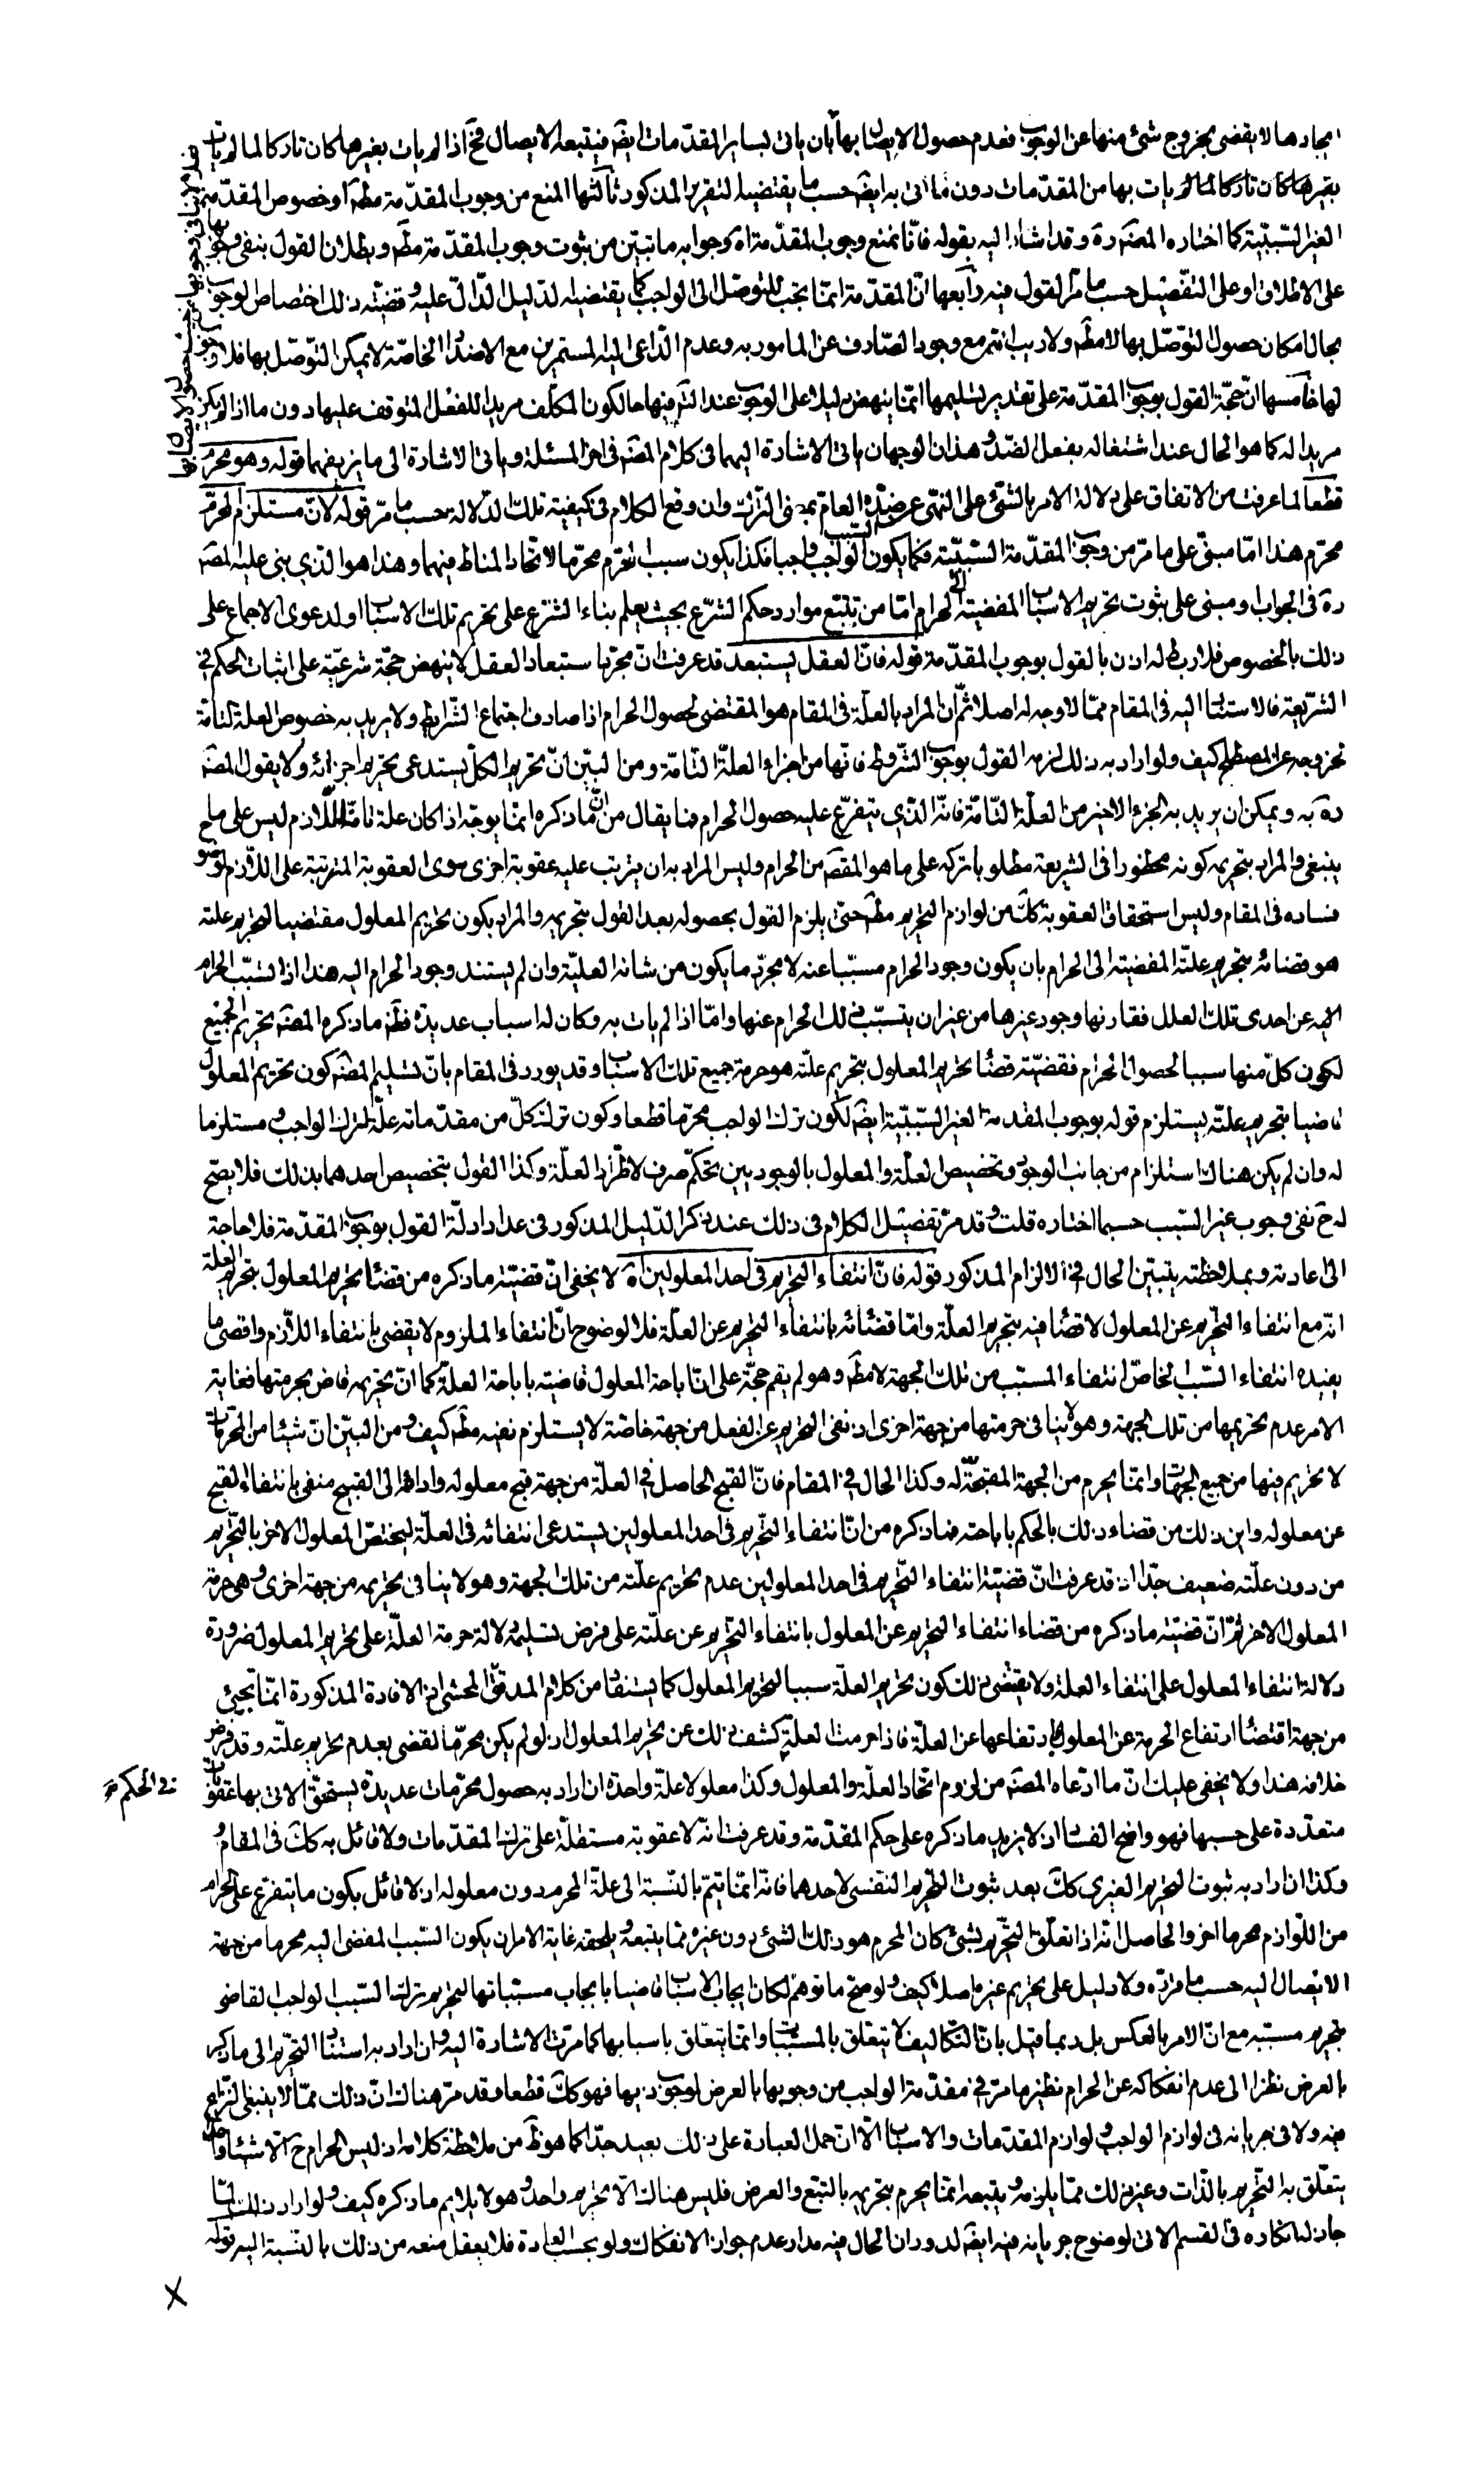 ايجادها لا يقضى بخروج شئ منها عن الوجوب فعدم حصول الايصال بها بان ياتى بساير المقدمات ايضَ فيتبعه الايصال فحَ اذا لم يات بغيرها كان تاركا لما لم يات
بغيرها كان تاركا لما لم يات بها من المقدّمات دون ما اتى به ايضَ حسب ما يقتضيه التقرير المذكور ثالثها المنع من وجوب المقدّمة مطَ او خصوص المقدّمة
الغير السّببيّة كما اختاره المصَ ره وقد اشار اليه بقوله فانّا نمنع وجوب المقدّمة اه وجوابه ما تبيّن من ثبوت وجوب المقدّمة مطَ وبطلان القول بنفى وجوبها
على الاطلاق او على التفصيل حسب ما مرّ القول فيه رابعها انّ المقدّمة انمّا يجب للتوصّل الى الواجب كما يقتضيه الدّليل الدّالّ عليه وقضيّة ذلك اختصاص الوجوب
بحال امكان حصول التوّصّل بها لا مطَ ولا ريب انّه مع وجود الصّارف عن المامور به وعدم الدّاعى اليه المستمرين مع الاضداد الخاصّة لا يمكن التوّصّل بها فلا وجوب
لها خامسها انّ حجّة القول بوجوب المقدّمة على تقدير تسليمها انمّا ينهض دليلا على الوجوب عند التّامل فيها حالكون المكلّف مريدا للفعل المتوقف عليها دون ما اذا لم يكن
مريدا له كما هو الحال عند اشتغاله بفعل الضدّ وهذان الوجهان ياتى الاشارة اليهما فى كلام المصَ فى اخر المسئلة وياتى الاشارة الى ما يزيفهما قوله وهو محرم
قطعا لما عرفت من الاتفاق على دلالة الامر بالشّئ على النّهى عن ضدّه العامّ بمعنى الترك وان وقع الكلام فى كيفيّة تلك الدّلالة حسب ما مرّ قوله لانّ مستلزم المحرّم
محرّم هذا امّا مبنىّ على ما مرّ من وجوب المقدّمة السّببيّة فكما يكون سبب الواجب واجبا فكذا يكون سبب المحرّم محرّما لاتّحاد المناط فيهما وهذا هو الّذي بنى عليه المصَ
ره فى الجواب او مبنى على ثبوت تحريم الاسباب المفضية الى الحرام امّا من تتبّع موارد حكم الشرّع بحيث يعلم بناء الشرّع على تحريم تلك الاسباب او لدعوى الاجماع على
ذلك بالخصوص فلا ربط له اذن بالقول بوجوب المقدّمة قوله فانّ العقل يستبعد قد عرفت انّ مجرّد استبعاد العقل لا ينهض حجّة شرعيّة على اثبات الحكم فى
الشّريعة فالاستناد اليه فى المقام ممّا لا وجه له اصلا ثمّ انّ المراد بالعلّة فى المقام هو المقتضى لحصول الحرام اذا صادف اجتماع الشّرايط ولا يريد به خصوص العلّة التّامّة
لخروجه عن المصطلح كيف ولو اراد به ذلك لزمه القول بوجوب الشّروط فانّها من اجزاء العلّة التّامّة ومن البيّن انّ تحريم الكلّ يستدعى تحريم اجزائه ولا يقول المصَ
ره به ويمكن ان يريد به الجزء الاخير من العلّة التّامّة فانّه الّذي يتفرّع عليه حصول الحرام فما يقال من انّ ما ذكره انمّا يوجّه اذا كان علّة تامّة للّازم ليس على ما
ينبغى والمراد بتحريمه كونه محظورا فى الشريعة مطلوبا تركه على ما هو المقصَ من الحرام وليس المراد به ان يترتب عليه عقوبة اخرى سوى العقوبة المترتبة على اللّازم لوضوح
فساده فى المقام وليس استحقاق العقوبة ككَ من لوازم التحريم مطَ حتى يلزم القول بحصوله بعد القول بتحريمه والمراد بكون تحريم المعلول مقتضيا لتحريم علته
هو قضائه بتحريم علّته المفضية الى الحرام بان يكون وجود الحرام مسبّبا عنه لا مجرّد ما يكون من شانه العليّة وان لم يستند وجود الحرام اليه هذا اذا تسبّب الحرام
اليه عن احدى تلك العلل فقارنها وجود غيرها من غير ان يتسبّب ذلك الحرام عنها وامّا اذا لم يات به وكان له اسباب عديدة فظَ ما ذكره المصَ تحريم الجميع
لكون كلّ منها سببا لحصول الحرام فقضيّة قضاء تحريم المعلول بتحريم علّته هو حرمة جميع تلك الاسباب وقد يورد فى المقام بانّ تسليم المصَ كون تحريم المعلول
قاضيا بتحريم علّته يستلزم قوله بوجوب المقدمة الغير السّببيّة ايضَ لكون ترك الواجب محرّما قطعا وكون ترك كلّ من مقدّماته علّة لترك الواجب ومستلزما
له وان لم يكن هناك استلزام من جانب الوجود وتخصيص العلّة والمعلول بالوجوديين تحكّم صرف لاطّراد العلّة وكذا القول بتخصيص احدهما بذلك فلا يصحّ
له حَ نفى وجوب غير السّبب حسبما اختاره قلت وقد مرّ تفصيل الكلام فى ذلك عند ذكر الدّليل المذكور فى عداد ادلّة القول بوجوب المقدّمة فلا حاجة
الى اعادته وبملاحظته يتبيّن الحال فى الالزام المذكور قوله فانّ انتفاء التحريم فى احد المعلولين اه لا يخفى انّ قضيّة ما ذكره من قضاء تحريم المعلول بتحريم العلّة
انّه مع انتفاء التّحريم عن المعلول لا قضاء فيه بتحريم العلّة وامّا قضائه بانتفاء التحريم عن العلّة فلا لوضوح انّ انتفاء الملزوم لا يقضى بانتفاء اللّازم واقصى ما
يفيده انتفاء السّبب الخاصّ انتفاء المسبّب من تلك الجهة لا مطَ وهو لم يقم حجّة على انّ اباحة المعلول قاضية باباحة العلّة كما انّ تحريمه قاض بحرمتها فغاية
الامر عدم تحريمها من تلك الجهة وهو لا ينافى حرمتها من جهة اخرى اذ نفى التحريم عن الفعل من جهة خاصّة لا يستلزم نفيه مطَ كيف ومن البيّن انّ شيئا من المحرّمات
لا تحريم فيها من جميع الجهات وانمّا يحرم من الجهة المقبّحة له وكذا الحال فى المقام فانّ القبح الحاصل فى العلّة من جهة قبح معلوله واداءها الى القبيح منفى بانتفاء القبح
عن معلوله واين ذلك من قضاء ذلك بالحكم باباحته فما ذكره من انّ انتفاء التّحريم فى احد المعلولين يستدعى انتفائه فى العلّة ليختصّ المعلول الاخر بالتّحريم
من دون علّته ضعيف جدّا اذ قد عرفت انّ قضيّة انتفاء التّحريم فى احد المعلولين عدم تحريم علّته من تلك الجهة وهو لا ينافى تحريمه من جهة اخرى وهى حرمة
المعلول الاخر ثمّ انّ قضيّة ما ذكره من قضاء انتفاء التحريم عن المعلول بانتفاء التحريم عن علّته على فرض تسليمه دلالة حرمة العلّة على تحريم المعلول ضرورة
دلالة انتفاء المعلول على انتفاء العلة ولا يقتضى ذلك كون تحريم العلّة سببا لتحريم المعلول كما يستفاد من كلام المدقّق المحشى اذ الافادة المذكورة انمّا تجئ
من جهة اقتضاء ارتفاع الحرمة عن المعلول بارتفاعها عن العلّة فاذا حرمت العلّة كشف ذلك عن تحريم المعلول اذ لو لم يكن محرّما لقضى بعدم تحريم علّته وقد فرض
خلافه هذا ولا يخفى عليك انّ ما ادّعاه المصَ من لزوم اتّحاد العلّة والمعلول وكذا معلولا علة واحدة ان اراد به حصول محرّمات عديدة يستحقّ الاتى بها عقوبات
فى الحكم
متعدّدة على حسبها فهو واضح الفساد اذ لا يزيد ما ذكره على حكم المقدّمة وقد عرفت انّه لا عقوبة مستقلّة على ترك المقدّمات ولا قائل به ككَ فى المقام
وكذا ان اراد به ثبوت التحريم الغيرى ككَ بعد ثبوت التحريم النفسى لاحدهما فانّه انمّا يتمّ بالنّسبة الى علّة المحرم دون معلوله اذ لا قائل بكون ما يتفرّع على الحرام
من اللّوازم محرما اخر والحاصل انّه اذا تعلّق التّحريم بشئ كان المحرم هو ذلك الشئ دون غيره ممّا يتبعه ويلحقه غاية الامر ان يكون السّبب المفضى اليه محرما من جهة
الايصال اليه حسب ما مرّ به ولا دليل على تحريم غيره اصلا كيف ولو صحّ ما توهّم لكان ايجاب الاسباب قاضيا بايجاب مسبّباتها لتحريم ترك السّبب الواجب القاضى
بتحريم مسببه مع انّ الامر بالعكس بل ربما قيل بانّ التّكاليف لا يتعلّق بالمسبّبات وانمّا يتعلّق باسبابها كما مرّت الاشارة اليه وان اراد به استناد التحريم الى ما ذكر
بالعرض نظرا الى عدم انفكاكه عن الحرام نظير ما مرّ فى مقدّمة الواجب من وجوبها بالعرض لوجوب ذيها فهو ككَ قطعا وقد مرّ هناك انّ ذلك ممّا لا ينبغى النّزاع
فيه ولا فى جريانه فى لوازم الواجب ولوازم المقدّمات والاسباب الّا انّ حمل العبارة على ذلك بعيد جدّا كما هو ظَ من ملاحظة كلامه اذ ليس الحرام حَ الّا شيئا واحدا
يتعلّق به التّحريم بالذّات وغير ذلك ممّا يلزمه ويتبعه انمّا يحرم بتحريمه بالتبع والعرض فليس هناك الّا تحريم واحد وهو لا يلايم ما ذكره كيف ولو اراد ذلك لما
جاز له انكاره فى القسم الاتى لوضوح جريانه فيه ايضَ لدوران الحال فيه مدار عدم جواز الانفكاك ولو بحسب العادة فلا يعقل منعه من ذلك بالنّسبة اليه قوله